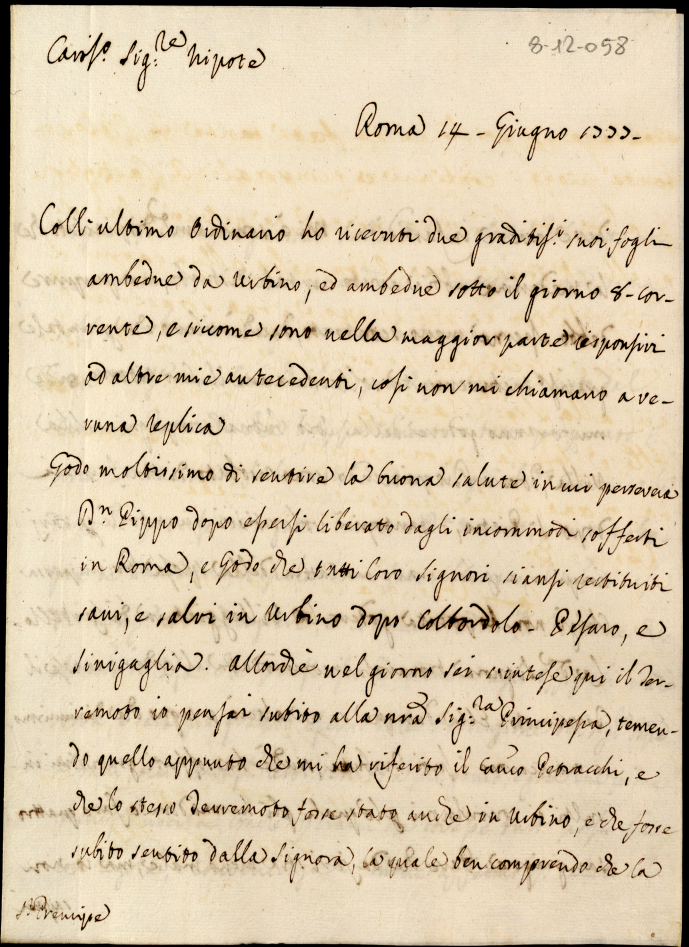 8-12-058
Cariss.o Sig.re Nipote
Roma 14 - Giugno 1777 -
Coll'ultimo Ordinario ho ricevuti due graditiss.i suoi fogli
ambedue da Urbino, ed ambedue sotto il giorno 8 - cor-
rente, e siccome sono nella maggior parte responsivi
ad altre mie antecedenti, così non mi chiamano a ve-
runa replica
Godo moltissimo di sentire la buona salute in cui persevera
D.n Pippo dopo essersi liberato dagli incommodi sofferti
in Roma, e Godo che tutti loro Signori siansi restituiti
sani, e salvi in Urbino dopo Colbordolo - Pesaro, e
Sinigaglia. Allorchè nel giorno sei s'intese qui il Ter-
remoto io pensai subito alla nra Sig.ra Principessa, temen-
do quello appunto che mi ha riferito il Petracchi, e
che lo stesso Terremoto fosse stato anche in Urbino, e che fosse
subito sentito dalla Signora, la quale ben comprendo che la
Prencipe